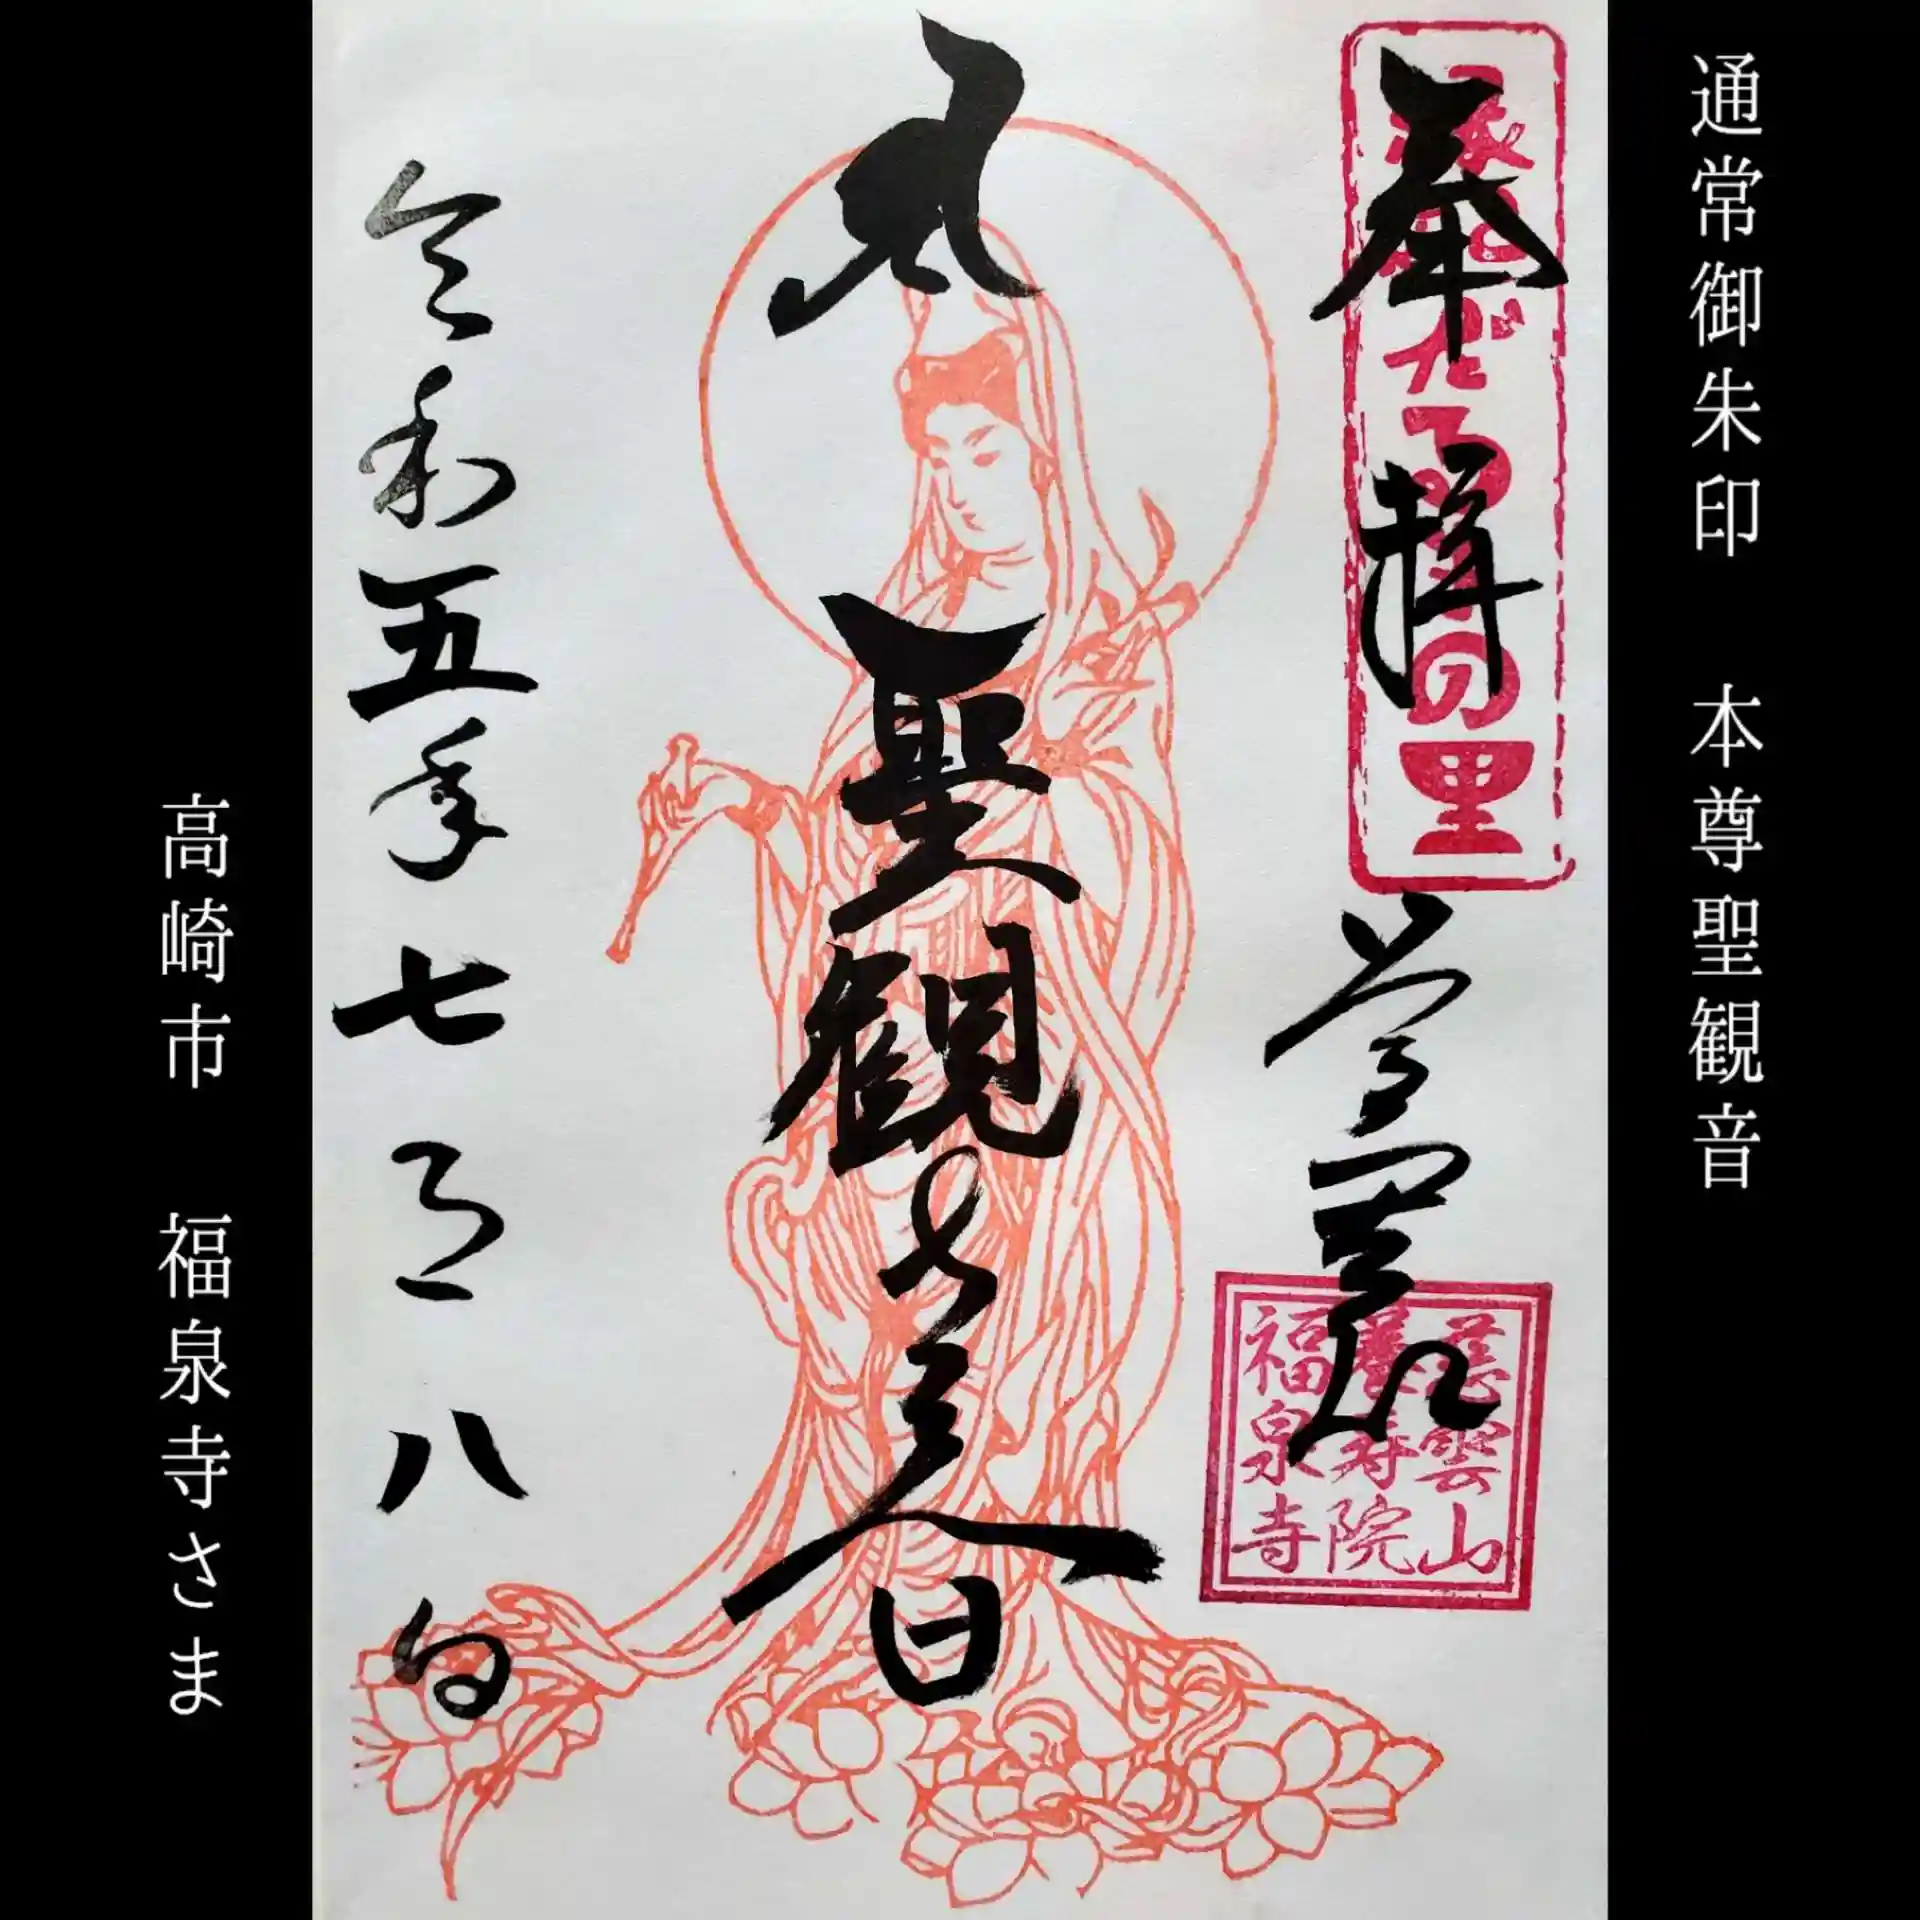 通常御朱印　本尊聖観音
縁起だるまの里
奉拝
慈雲山
養寿院
福泉寺
聖観世音
令和五年七月八日
高崎市　福泉寺さま